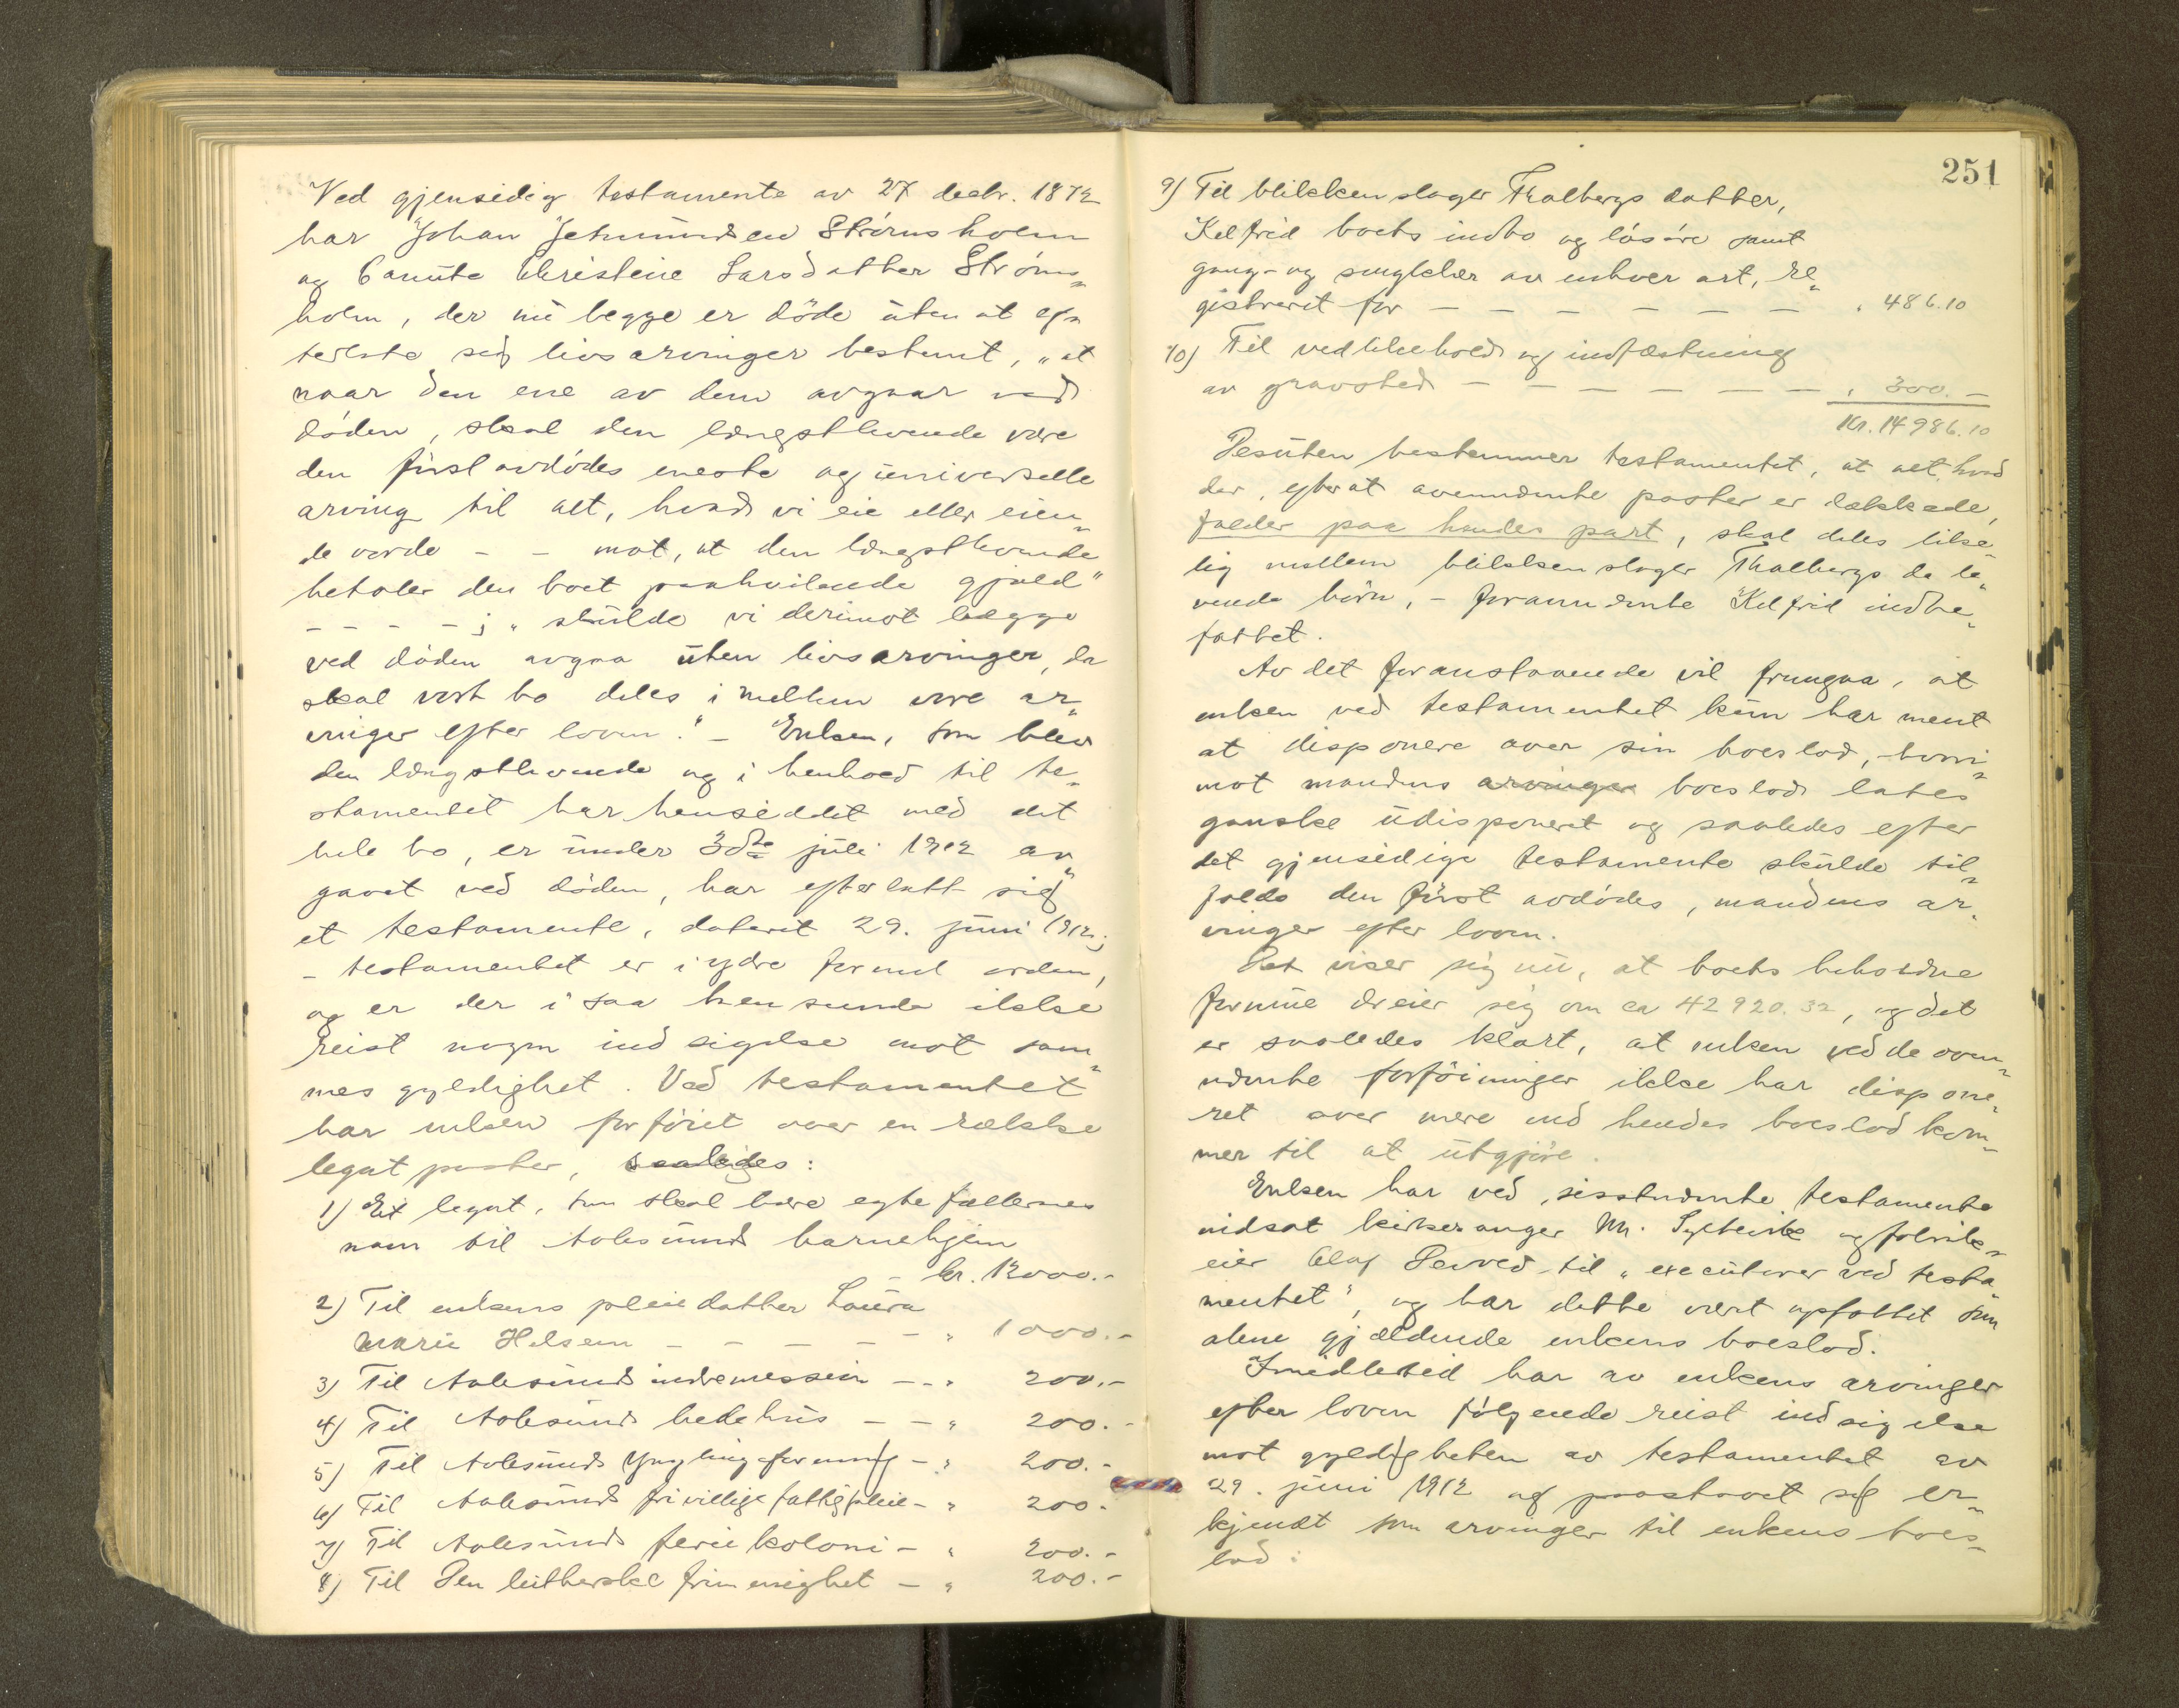 Ved gjensidig testamente av 27 decbr. 1872
har Johan Jetmundsen Strømsholm
og Canute Christine Larsdatter Strøms„
holm, der nu begge er døde uten at ef„
terlate sig livsarvinger bestemt, „at
naar den ene av dem avgaar ved
døden, skal den længstlevende være
den først avdødes eneste og universelle
arving til alt, hvad vi eie eller eien„
de vorde - - mot, at den længstlevende
betaler den boet paahvilende gjæld"
- - - - ; „skulde vi derimot begge
ved døden avgaa uten livsarvinger, da
skal vort bo deles imellem vore ar„
vinger efter loven." - Enken, som blev
den længstlevende og i henhold til te„
stamentet har hensiddet med det
hele bo, er under 3die juli 1912 av„
gaaet ved døden, har efterlatt sig
et testamente, datert 29. juni 1912;
- testamentet er i ydre formel orden,
og er der i saa henseende ikke
reist nogen indsigelse mot sam„
mes gyldighet. Ved testamentet
har enken forføiet over en række
legatposter, saaledes:
1) Et legat, som skal bære egtefællernes
navn til Aalesunds barnehjem
- kr. 12000.-
2) Til enkens pleiedatter Laura
Marie Helsem - - - - - „ 1000.-
3) Til Aalesunds indremission - - „ 200.-
4) Til Aalesunds bedehus - - „ 200.-
5) Til Aalesunds Ynglingeforening - „ 200.-
6) Til Aalesunds frivillige fattigpleie - „ 200.-
7) Til Aalesunds feriekoloni - „ 200.-
8) Til Den lutherske frimenighet - „ 200.-
251
9) Til blikkenslager Thalbergs datter,
Kelfrid boets indbo og løsøre samt
gang- og sengklær av enhver art, re„
gistreret for - - - - - - - „ 486.10
10) Til vedlikehold og indfæstning
av gravsted - - - - - - - „ 300.-
Kr. 14986.10
Desuten bestemmer testamentet, at alt, hvad
der, efterat avennævnte poster er dækkede,
falder paa hendes part, skal deles like„
lig mellem blikkenslager Thalbergs da le„
vende børn, - forannævnte Kelfrid indbe„
fattet.
Av det foranstaaende vil fremgaa, at
enken ved testamentet kun har ment
at disponere over sin boeslod, hvori„
mot mandens arvinger boeslod lates
ganske udisponert og saaledes efter
det gjensidige testamente skulde til„
falde den først avdødes, mandens ar„
vinger efter loven.
Det viser sig nu, at boets beholdne
formue dreier sig om ca 42920.32, og det
er saaledes klart, at enken ved de oven„
nævnte forføininger ikke har dispone„
ret over mere end hendes boeslod kom„
mer til at utgjøre.
Enken har ved sisstnævnte testamente
nidsat kirkesanger M. Syltevik og fabrik„
eier Olaf Devold til „executorer ved testa„
mentet", og har dette vært opfattet som
alene gjældende enkens boeslod.
Imidlertid har av enkens arvinger
efter loven følgende reist indsigelse
mot gyldigheten av testamentet av
29. juni 1912 og paastaaet sig er„
kjendt som arvinger til enkens boes„
lod: